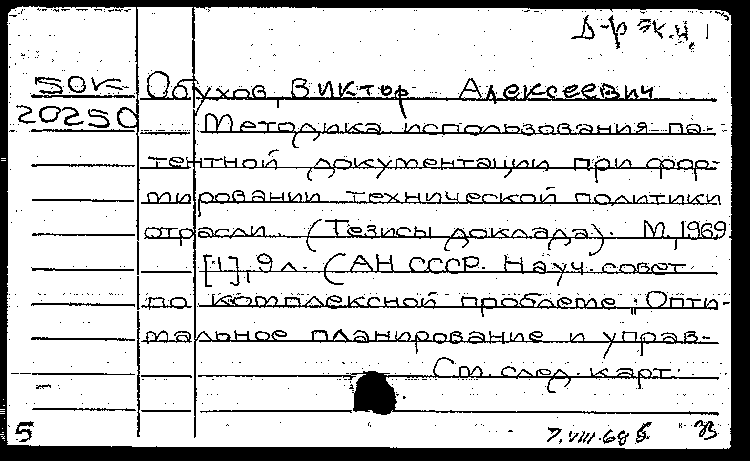 Д-р эк.н.
50к Обухов, Виктор Алексеевич
20250 Методика использования па-
тентной документации при фор-
мировании технической политики
отрасли. (Тезисы доклада). М., 1969
[1], 9 л. (АН СССР. Науч. совет
по комплексной проблеме „Опти-
мальное планирование и управ-
См. след. карт.
5 7.VIII.68